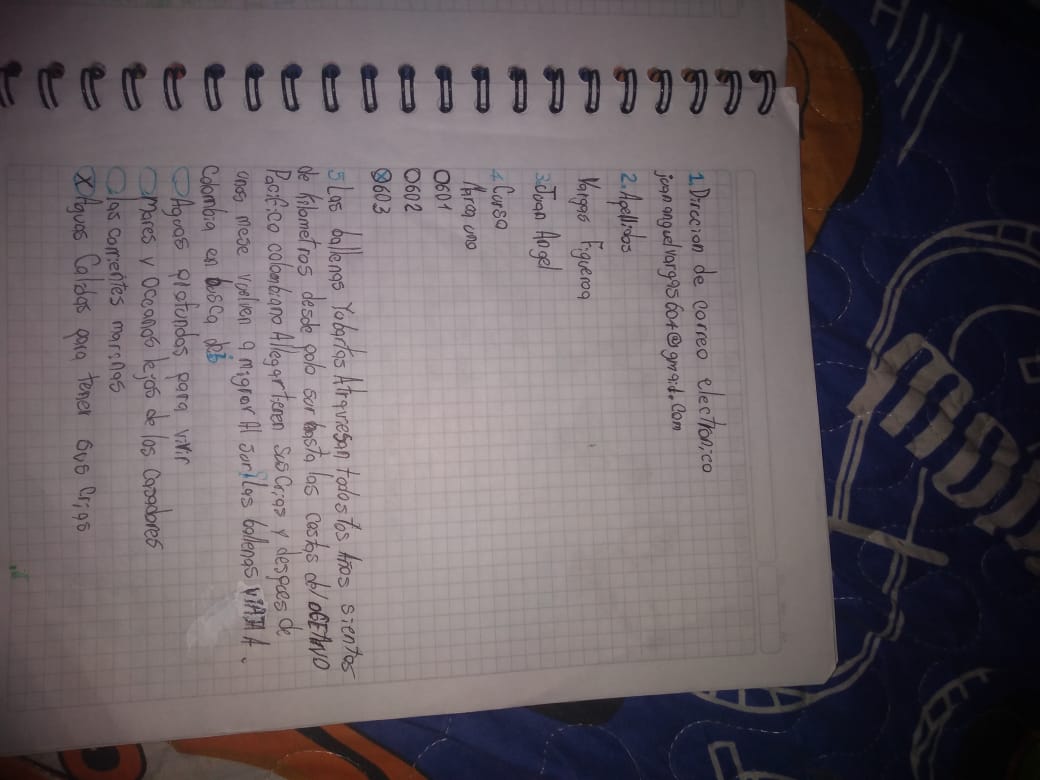 1. Direcion de correo electronico
jeanangelvargas604@gmail.com
2. Apellidos
Vargas Figueroa
3. Juan Angel
4. Curso
Marq uno
0601
0602
603
5 Las ballenas Yubartas Atraviesan todos los Años sientos
de kilometros desde polo sur hasta las costas del OCEANO
Pacifico colombiano Allegar tienen sus Crias y despues de
unos mese vuelven a migrar Al sur las ballenas VIAJA A.
Colombia en busca de
Aguas profundas para vivir
mares y Oceanos lejos de los cazadores
las corrientes marinas
x Aguas Calidas para tener sus Crias